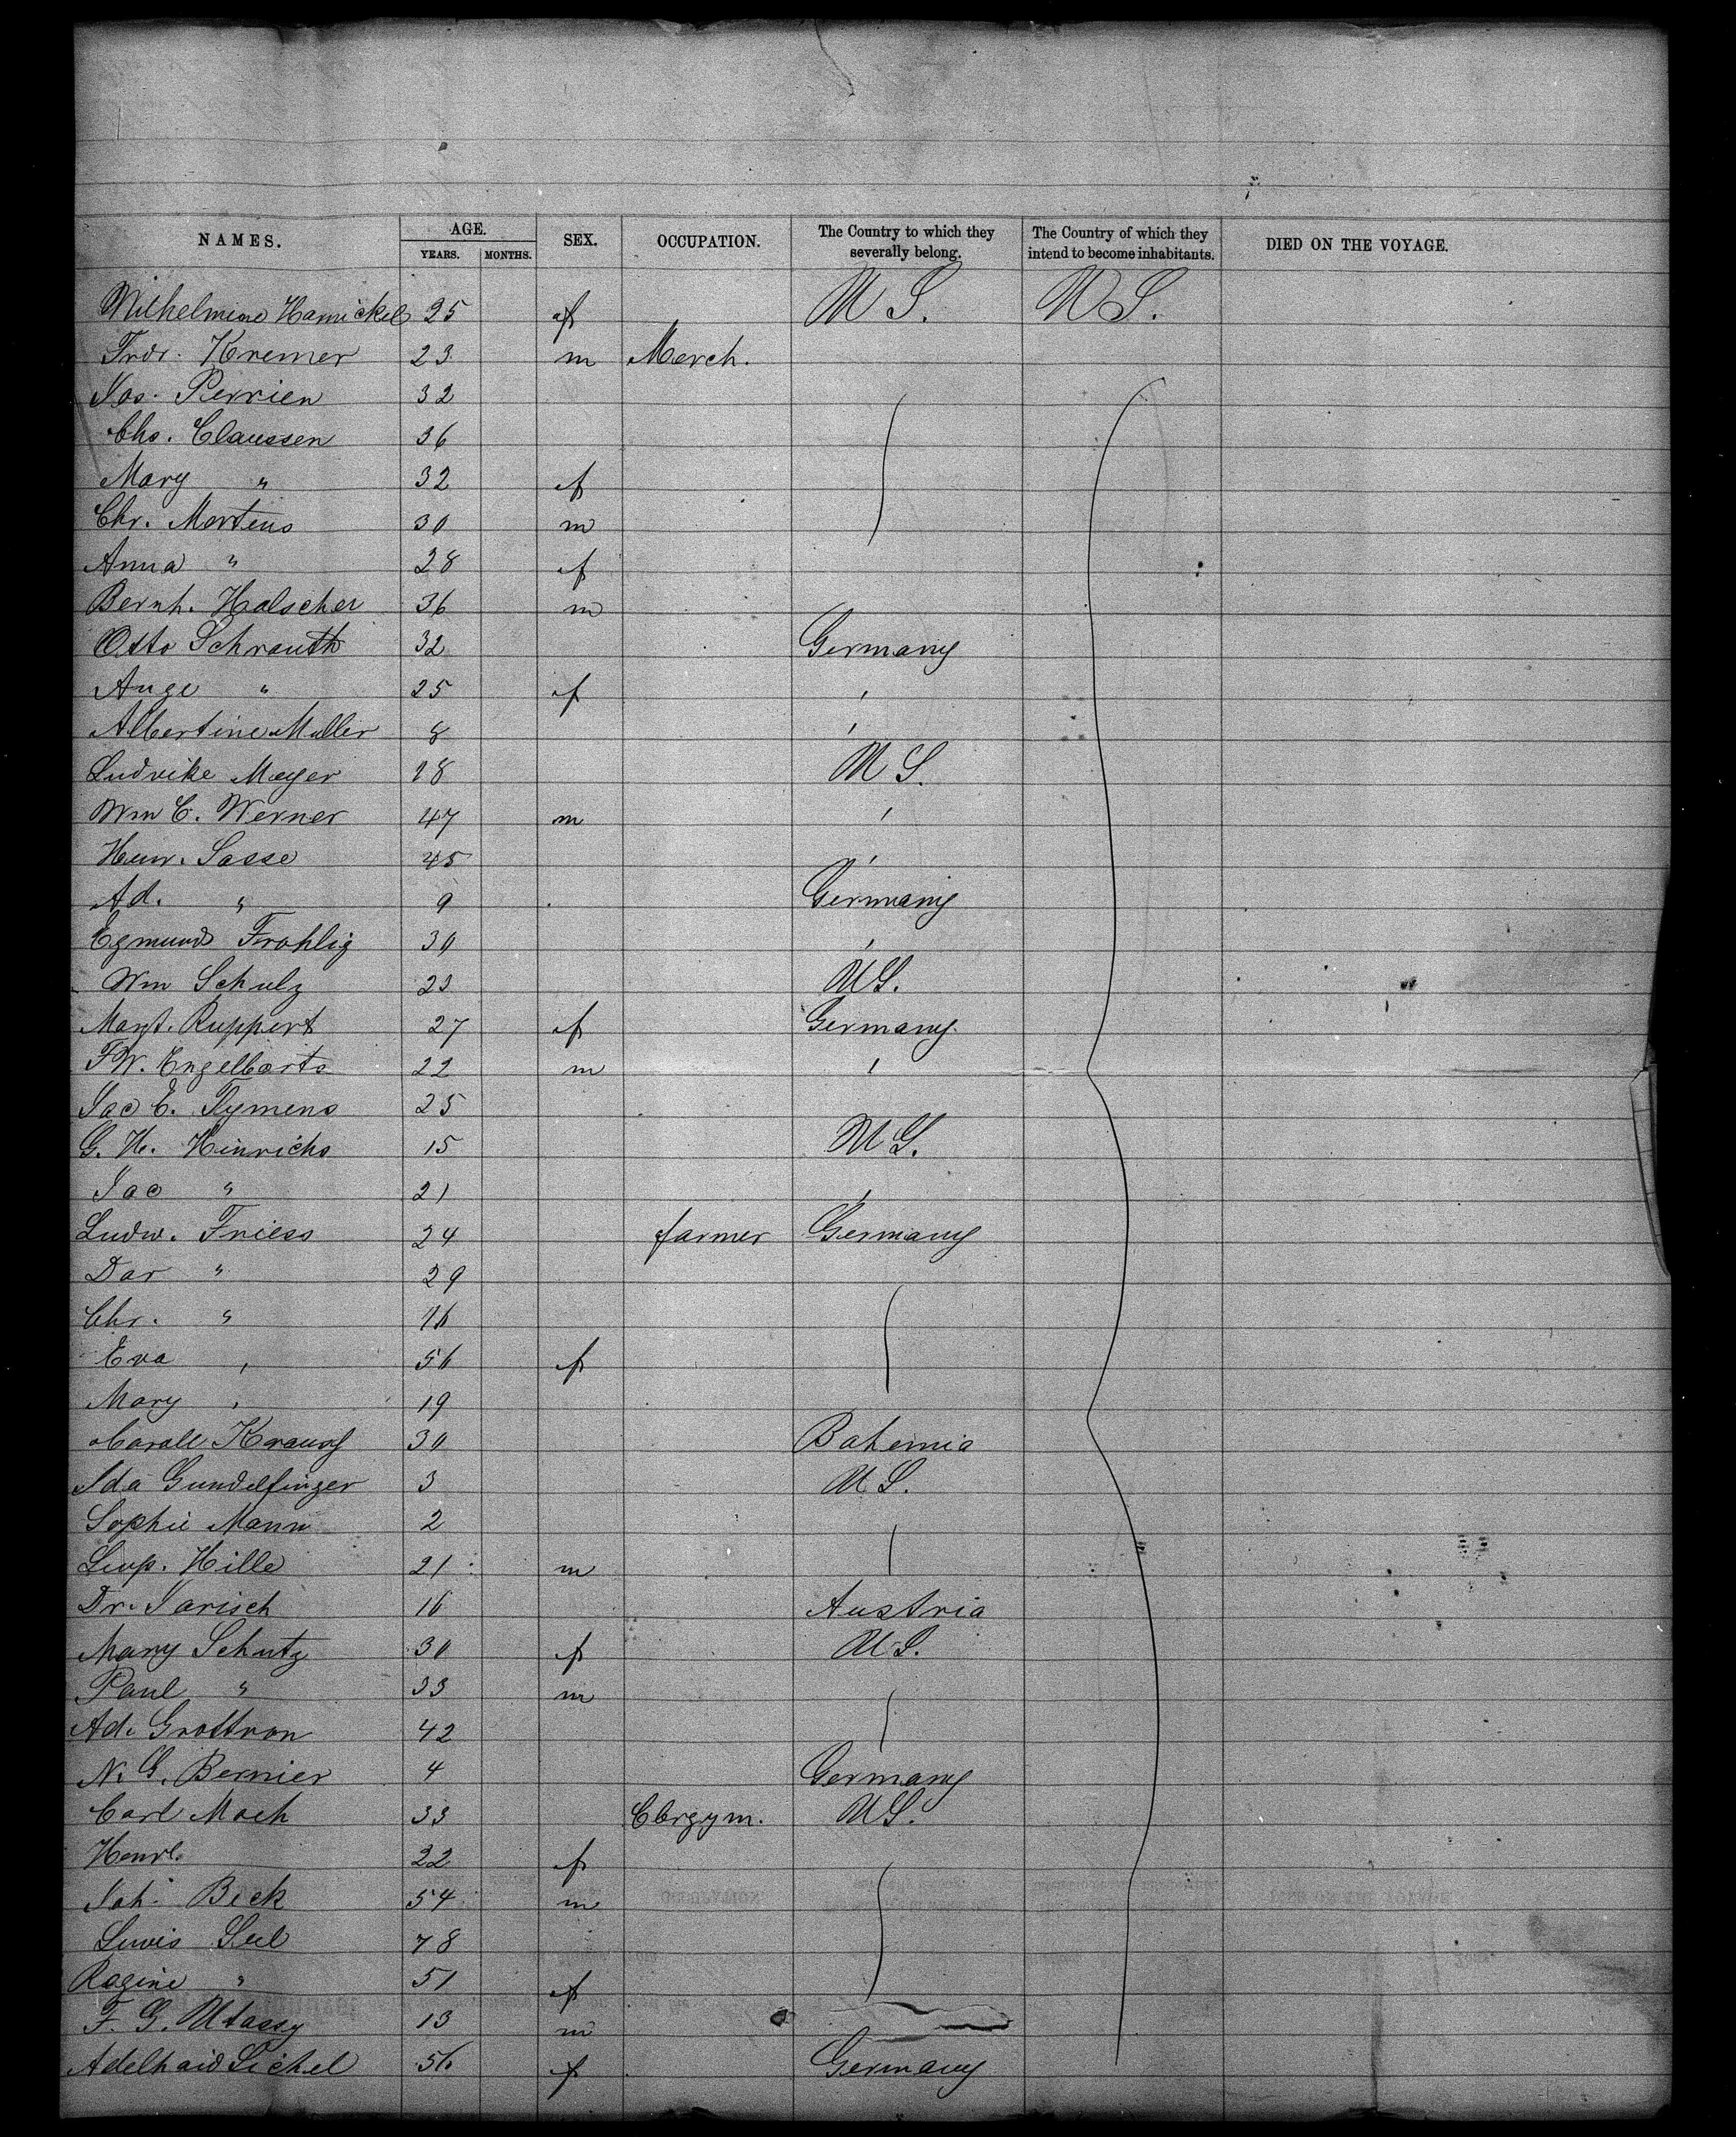 NAMES. AGE. SEX. OCCUPATION. The Country to which they severally belong. The Country of which they intend to become inhabitants. DIED ON THE VOYAGE.
YEARS. MONTHS.
Wilhelmine Harnickel 25 f U S. U S.
Frdr. Kremer 23 m Merch.
Jos. Perrien 32
Chs. Claussen 36
Mary " 32 f
Chr. Mertens 30 m
Anna " 28 f
Bernh. Holscher 36 m
Otto Schrauth 32 Germany
Auge " 25 f '
Albertine Muller 8 '
Ludvike Meyer 18 U S.
Wm C. Werner 47 m '
Henr. Sasse 45 '
Ad. " 9 Germany
Egmund Frohlig 30 '
Wm Schulz 23 U S.
Margt. Ruppert 27 f Germany
FW. Engelbarts 22 m '
Jac E. Tymens 25
G. H. Hinrichs 15 U S.
Jac " 21 '
Ludw. Friess 24 farmer Germany
Dor " 29
Chr. " 16
Eva " 56 f
Mary " 19
30 Bohemia
Ida Gundelfinger 3 U S.
Sophie Mann 2
Leop. Hille 21 m
Dr. Jarisch 16 Austria
Mary Schutz 30 f U S.
Paul " 33 m
Ad. Grottran 42
N. G. Bernier 4 Germany
Carl Moch 33 Clergym. U S.
Henr. 22 f
Joh. Beck 54 m
Lewis Seel 78
Rogine " 51 f
F. G. Utassy 13 m
Adelhaid Sichel 56 f Germany